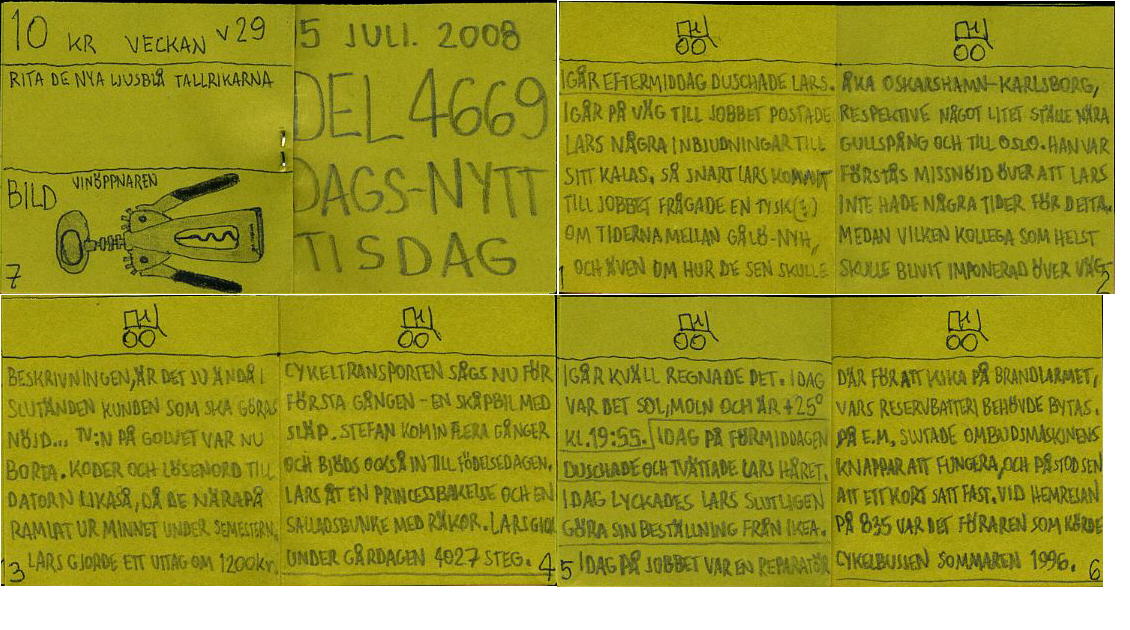 10 KR VECKAN V29
RITA DE NYA LJUSBLÅ TALLRIKARNA
BILD VINÖPPNAREN
7
5 JULI. 2008
DEL 4669
DAGS-NYTT
TISDAG
IGÅR EFTERMIDDAG DUSCHADE LARS.
IGÅR PÅ VÄG TILL JOBBET POSTADE
LARS NÅGRA INBJUDNINGAR TILL
SITT KALAS. SÅ SNART LARS KOMMIT
TILL JOBBET FRÅGADE EN TYSK(?)
OM TIDERNA MELLAN GÅLÖ-NYH,
OCH ÄVEN OM HUR DE SEN SKULLE
1
ÅKA OSKARSHAMN-KARLSBORG,
RESPEKTIVE NÅGOT LITET STÄLLE NÄRA
GULLSPÅNG OCH TILL OSLO. HAN VAR
FÖRSTÅS MISSNÖJD ÖVER ATT LARS
INTE HADE NÅGRA TIDER FÖR DETTA.
MEDAN VILKEN KOLLEGA SOM HELST
SKULLE BLIVIT IMPONERAD ÖVER VÄG-
2
BESKRIVNINGEN, ÄR DET JU ÄNDÅ I
SLUTÄNDEN KUNDEN SOM SKA GÖRAS
NÖJD... TV:N PÅ GOLVET VAR NU
BORTA. KODER OCH LÖSENORD TILL
DATORN LIKASÅ, DÅ DE NÄRAPÅ
RAMLAT UR MINNET UNDER SEMESTERN.
LARS GJORDE ETT UTTAG OM 1200kr.
3
CYKELTRANSPORTEN SÅGS NU FÖR
FÖRSTA GÅNGEN - EN SKÅPBIL MED
SLÄP. STEFAN KOM IN FLERA GÅNGER
OCH BJÖDS OCKSÅ IN TILL FÖDELSEDAGEN.
LARS ÅT EN PRINCESSBAKELSE OCH EN
SALLADSBUNKE MED RÄKOR. LARS GICK
UNDER GÅRDAGEN 4027 STEG.
4
IGÅR KVÄLL REGNADE DET. IDAG
VAR DET SOL, MOLN OCH ÄR +25°
KL.19:55. IDAG PÅ FÖRMIDDAGEN
DUSCHADE OCH TVÄTTADE LARS HÅRET.
IDAG LYCKADES LARS SLUTLIGEN
GÖRA SIN BESTÄLLNING FRÅN IKEA.
IDAG PÅ JOBBET VAR EN REPARATÖR
5
DÄR FÖR ATT KIKA PÅ BRANDLARMET,
VARS RESERVBATTERI BEHÖVDE BYTAS.
PÅ E.M, SLUTADE OMBUDSMASKINENS
KNAPPAR ATT FUNGERA, OCH PÅSTOD SEN
ATT ETT KORT SATT FAST. VID HEMRESAN
PÅ 835 VAR DET FÖRAREN SOM KÖRDE
CYKELBUSSEN SOMMAREN 1996.
6